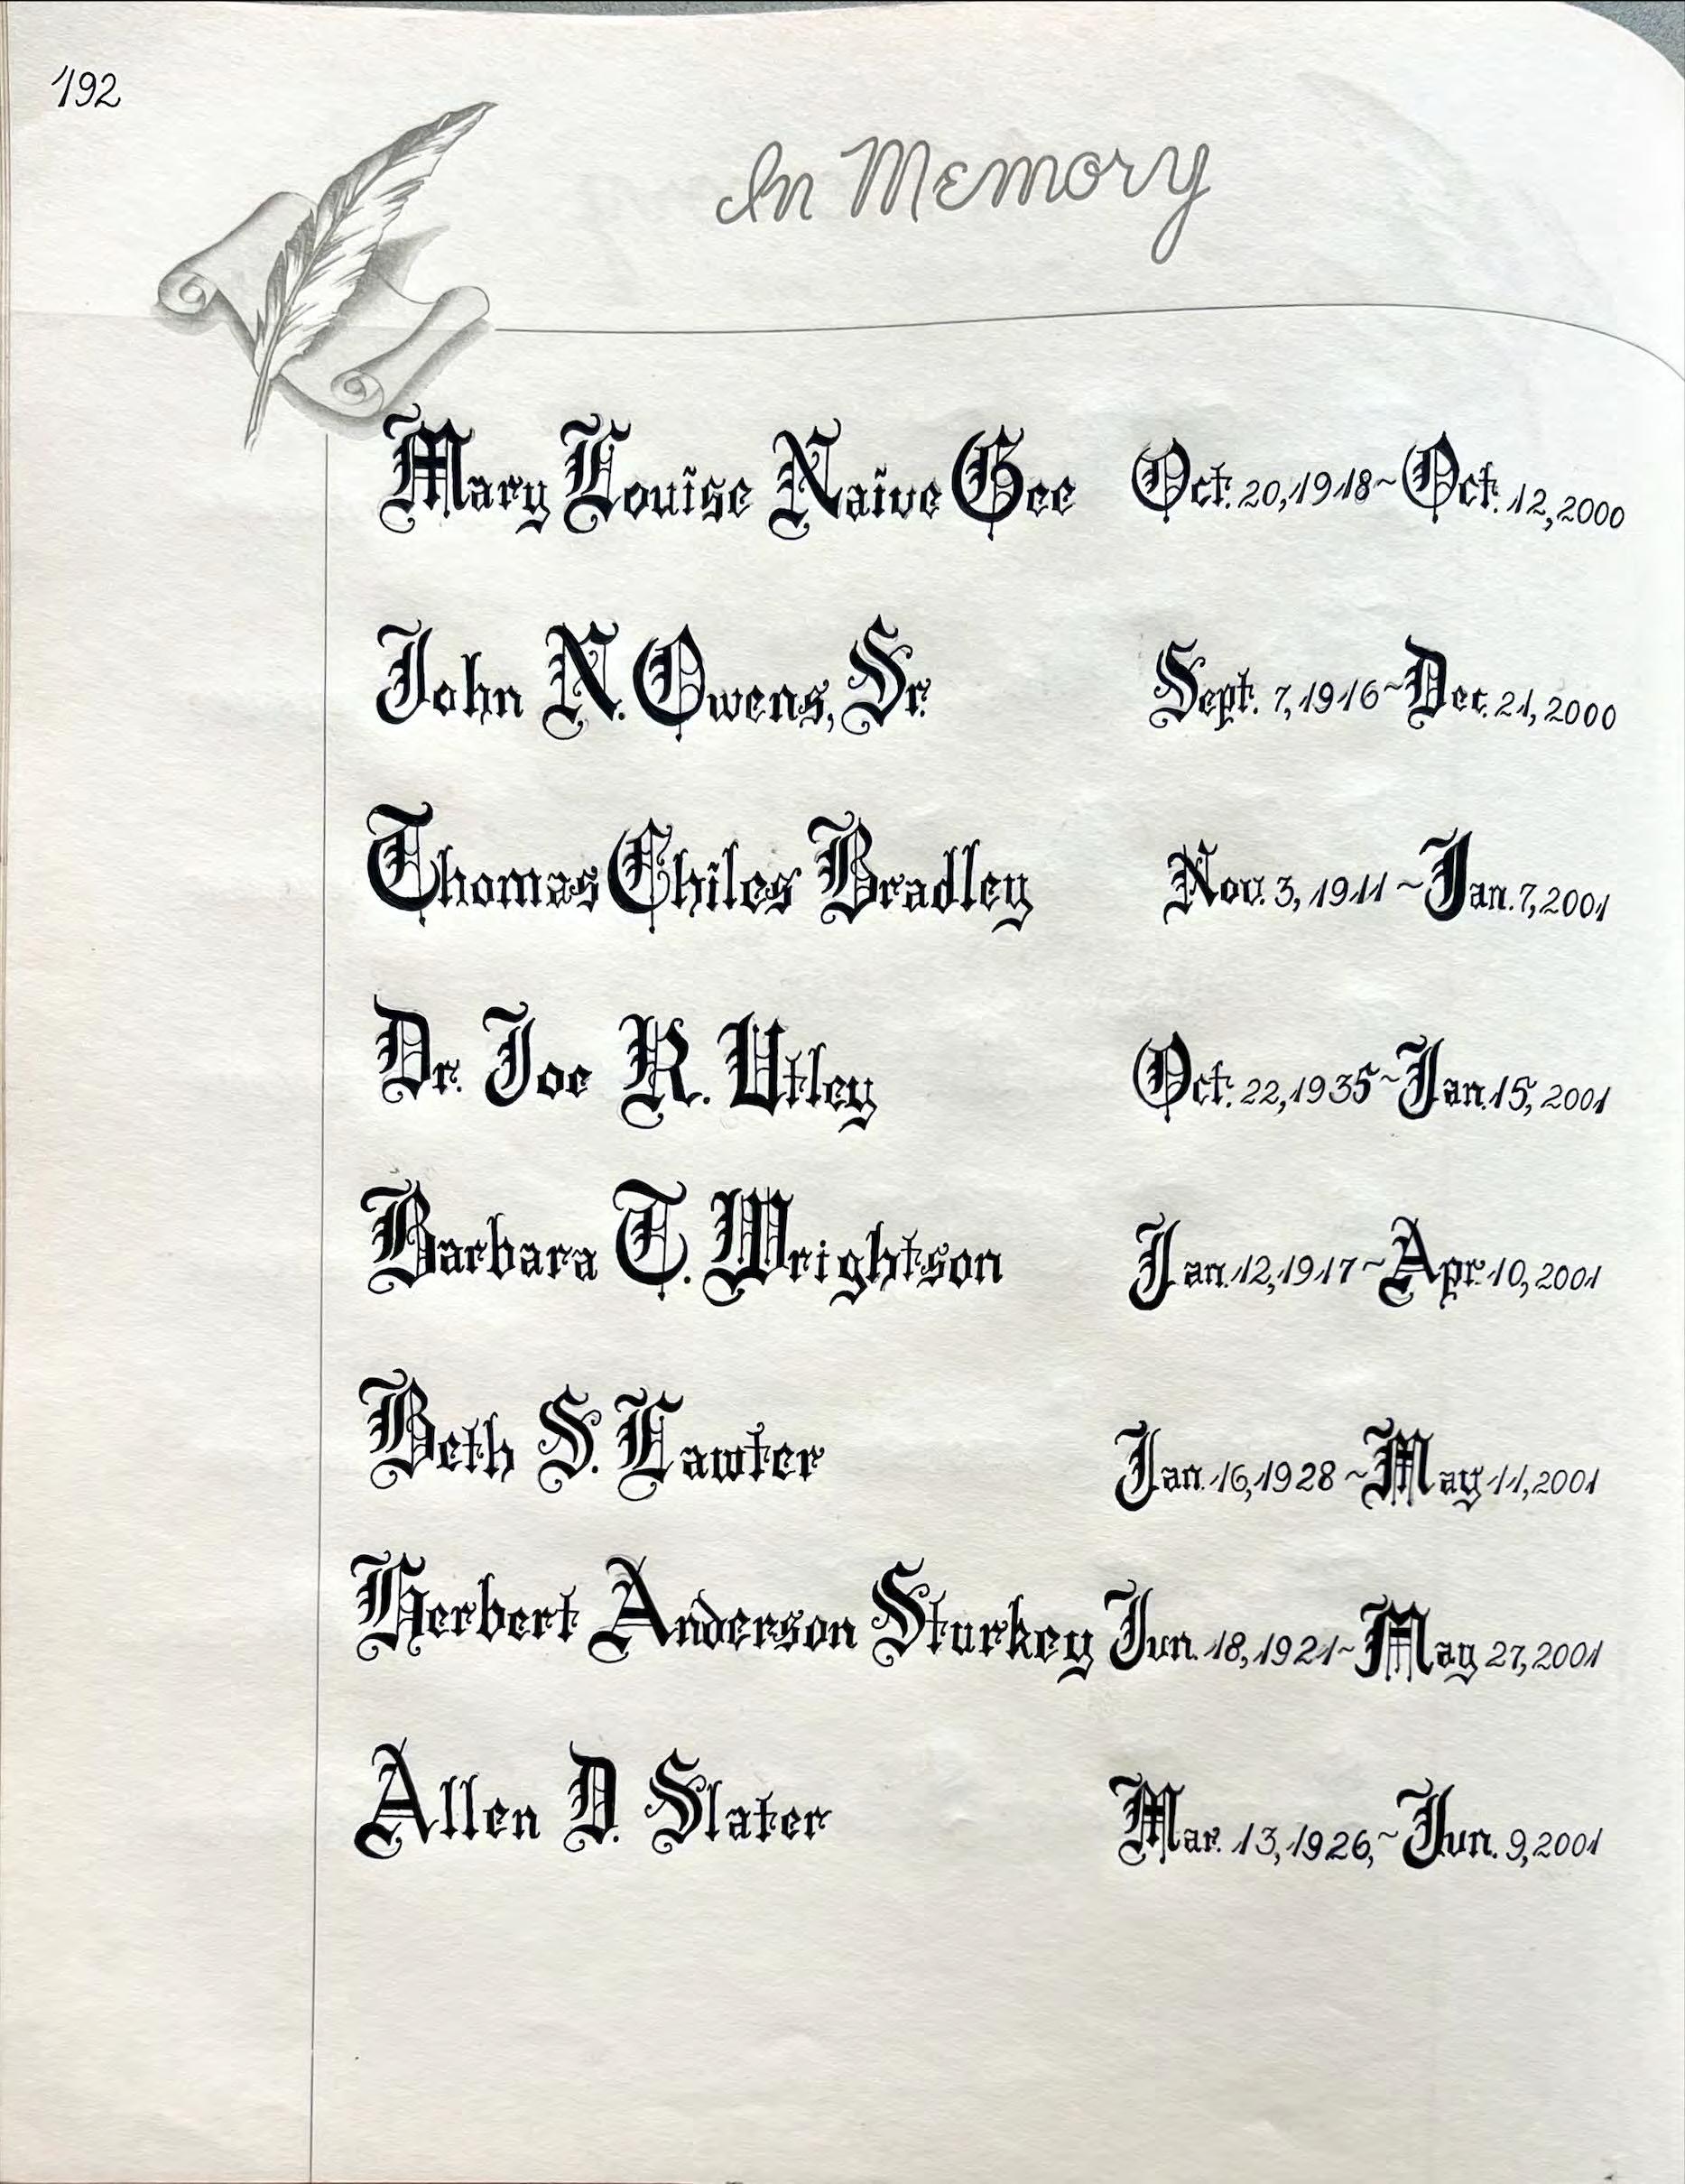 192
In Memory
Mary Louise Naive Gee Oct. 20, 1918~Oct. 12, 2000
John N. Owens, Sr. Sept. 7, 1916~Dec. 21, 2000
Thomas Chiles Bradley Nov. 3, 1911~Jan. 7, 2001
Dr. Joe R. Utley Oct. 22, 1935~Jan. 15, 2001
Barbara T. Wrightson Jan. 12, 1917~Apr. 10, 2001
Beth S. Lawter Jan. 16, 1928~May 11, 2001
Herbert Anderson Sturkey Jun. 18, 1921~May 27, 2001
Allen D. Slater Mar. 13, 1926,~Jun. 9, 2001